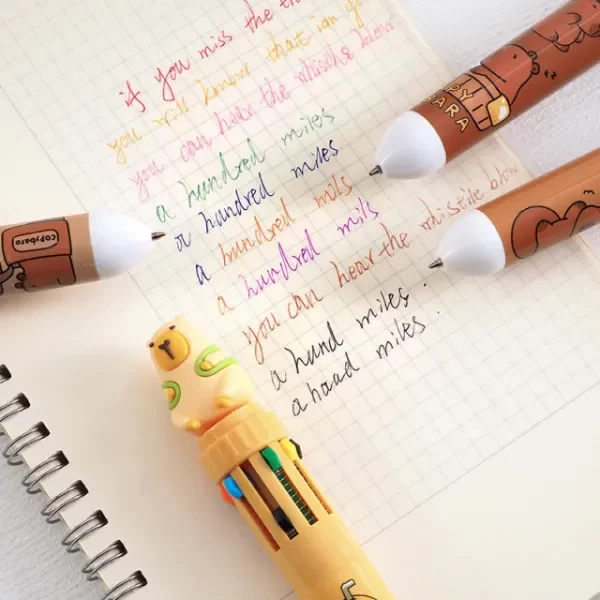 if you miss the
you will know that i am
you can hear the whistle blow
a hundred miles
a hundred miles
a hundred mils
a hundred mils
you can hear the whistile blow
a hund miles.
a haad miles.
PY
BARA
COPYBARA